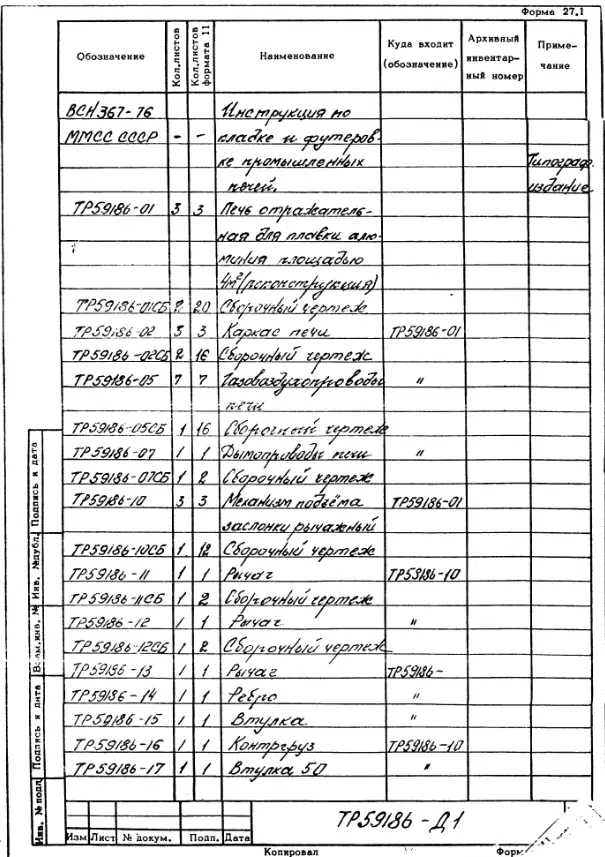 Форма 27.1
Обозначение Кол.листов Кол.листов формата 11 Наименование Куда входит (обозначение) Архивный инвентарный номер Примечание
ВСН367-76 Инструкция по
ММСС СССР - - кладке и футеров-
ке промышленных Типограф.
печей. издание
ТР59186-01 3 3 Печь отражатель-
ная для плавки алю-
миния площадью
4м²(реконструкция)
ТР59186-01СБ 2 20 Сборочный чертеж
ТР59186-02 3 3 Каркас печи ТР59186-01
ТР59186-02СБ 2 16 Сборочный чертеж
ТР59186-05 7 7 Газовоздухопроводы "
печи
ТР59186-05СБ 1 16 Сборочный чертеж
ТР59186-07 1 1 Дымопроводы печи "
ТР59186-07СБ 1 2 Сборочный чертеж
ТР59186-10 3 3 Механизм подъёма ТР59186-01
заслонки рычажный
ТР59186-10СБ 1 12 Сборочный чертеж
ТР59186-11 1 1 Рычаг ТР59186-10
ТР59186-11СБ 1 2 Сборочный чертеж
ТР59186-12 1 1 Рычаг "
ТР59186-12СБ 1 2 Сборочный чертеж
ТР59186-13 1 1 Рычаг ТР59186-
ТР59186-14 1 1 Ребро "
ТР59186-15 1 1 Втулка "
ТР59186-16 1 1 Контргруз ТР59186-10
ТР59186-17 1 1 Втулка 50 "
Инв. № подл. Подпись и дата Взам.инв. № Инв. №дубл. Подпись и дата
ТР59186-Д1
Изм Лист № докум. Подп. Дата
Копировал Форм